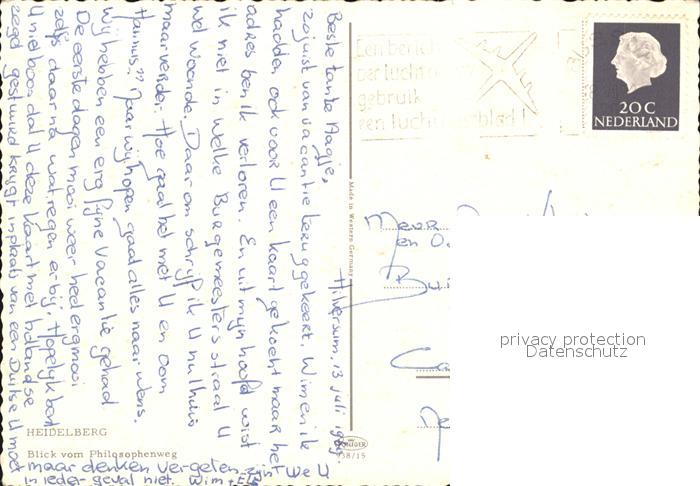 Hilversum, 13 juli 1969.
Beste tante Aagje,
zojuist van vacantie teruggekeert. Wim en ik
hadden ook voor U een kaart gekocht maar het
adres ben ik verloren. En uit mijn hoofd wist
ik niet in welke Burgemeestersstraat U
wel woonde. Daarom schrijf ik U nu thuis
maar verder. Hoe gaat het met U en oom
Hannis? Maar wij hopen gaat alles naar wens.
Wij hebben een erg fijne vacantie gehad
De eerste dagen mooi weer heel erg mooi
zelfs daarna wat regen erbij. Hopelijk bent
U niet boos dat U deze kaart met hollandse
zegel gestuurd krijgt inplaats van een Duitse U moet
maar denken vergeten zijn we U
in ieder geval niet. Wim +
HEIDELBERG
Blick vom Philosophenweg
Made in Western Germany
KRÜGER
38/15
Een bericht
per lucht
gebruik
een luchtpostblad!
20 C
NEDERLAND
Mevr
en O.
Bu
Ca
privacy protection
Datenschutz